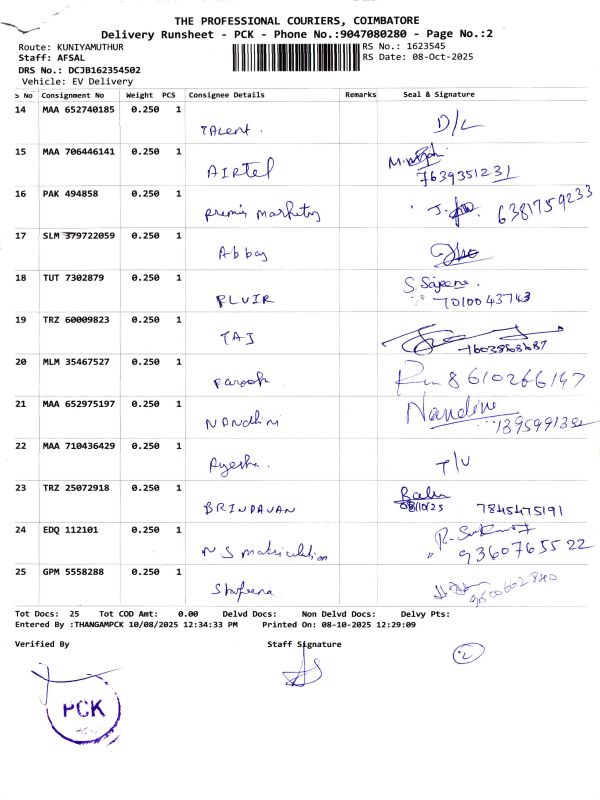 THE PROFESSIONAL COURIERS, COIMBATORE
Delivery Runsheet - PCK - Phone No.:9047080280 - Page No.:2
Route: KUNIYAMUTHUR RS No.: 1623545
Staff: AFSAL RS Date: 08-Oct-2025
DRS No.: DCJB162354502
Vehicle: EV Delivery
S No Consignment No Weight PCS Consignee Details Remarks Seal & Signature
14 MAA 652740185 0.250 1 TALENT. D/L
15 MAA 706446141 0.250 1 AIRTEL 7639351231
16 PAK 494858 0.250 1 Premis marketing 6381759233
17 SLM 379722059 0.250 1 Abbas
18 TUT 7302879 0.250 1 FLUIR S. 7010043743
19 TRZ 60009823 0.250 1 TAJ
20 MLM 35467527 0.250 1 Farook 8610266147
21 MAA 652975197 0.250 1 NANDhini Nandine
22 MAA 710436429 0.250 1 Ayesha. T/V
23 TRZ 25072918 0.250 1 BRINDAVAN Balu
08/10/25 7845475191
24 EDQ 112101 0.250 1 N S matriculation 9360765522
25 GPM 5558288 0.250 1 Shafeena
Tot Docs: 25 Tot COD Amt: 0.00 Delvd Docs: Non Delvd Docs: Delvy Pts:
Entered By :THANGAMPCK 10/08/2025 12:34:33 PM Printed On: 08-10-2025 12:29:09
Verified By Staff Signature
PCK